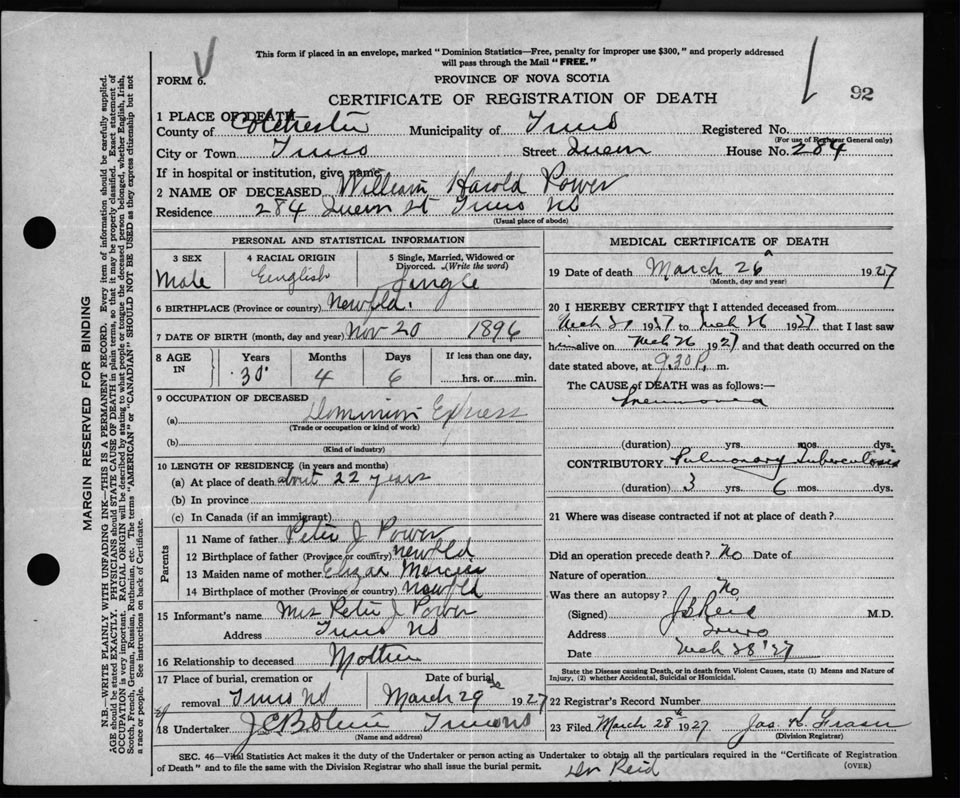 This form if placed in an envelope, marked "Dominion Statistics—Free, penalty for improper use $300," and properly addressed
will pass through the Mail "FREE."
FORM 6.
PROVINCE OF NOVA SCOTIA
CERTIFICATE OF REGISTRATION OF DEATH
92
1 PLACE OF DEATH
County of Colchester Municipality of Truro Registered No.
(For use of Registrar General only)
City or Town Truro Street Queen House No. 284
If in hospital or institution, give name
2 NAME OF DECEASED William Harold Power
Residence 284 Queen St Truro NS
(Usual place of abode)
PERSONAL AND STATISTICAL INFORMATION
3 SEX 4 RACIAL ORIGIN 5 Single, Married, Widowed or
Divorced. (Write the word)
Male English Single
6 BIRTHPLACE (Province or country) Newfld.
7 DATE OF BIRTH (month, day and year) Nov 20 1896
8 AGE IN Years Months Days If less than one day,
30 4 6 hrs. or min.
9 OCCUPATION OF DECEASED
(a) Dominion Express
(Trade or occupation or kind of work)
(b)
(Kind of industry)
10 LENGTH OF RESIDENCE (in years and months)
(a) At place of death about 22 years
(b) In province
(c) In Canada (if an immigrant)
Parents
11 Name of father Peter J Power
12 Birthplace of father (Province or country) newfld
13 Maiden name of mother
14 Birthplace of mother (Province or country) Newfld
15 Informant's name Mrs Peter J Power
Address Truro NS
16 Relationship to deceased Mother
17 Place of burial, cremation or Date of burial
removal Truro NS March 29 1927
18 Undertaker Truro NS
(Name and address)
MEDICAL CERTIFICATE OF DEATH
19 Date of death March 26 1927
(Month, day and year)
20 I HEREBY CERTIFY that I attended deceased from
1927 to Mch 26 1927 that I last saw
him alive on Mch 26 1927 and that death occurred on the
date stated above, at 9.30 P. m.
The CAUSE of DEATH was as follows:—
Pneumonia
(duration) yrs. mos. dys.
CONTRIBUTORY Pulmonary Tuberculosis
(duration) 3 yrs. 6 mos. dys.
21 Where was disease contracted if not at place of death?
Did an operation precede death? No Date of
Nature of operation
Was there an autopsy? No
(Signed) Reid M.D.
Address Truro
Date Mch 28 '27
State the Disease causing Death, or in death from Violent Causes, state (1) Means and Nature of
Injury, (2) whether Accidental, Suicidal or Homicidal.
22 Registrar's Record Number
23 Filed March 28th 1927 Jas. Fraser
(Division Registrar)
SEC. 46—Vital Statistics Act makes it the duty of the Undertaker or person acting as Undertaker to obtain all the particulars required in the "Certificate of Registration
of Death" and to file the same with the Division Registrar who shall issue the burial permit.
(OVER)
Dr Reid
MARGIN RESERVED FOR BINDING
N.B.—WRITE PLAINLY WITH UNFADING INK—THIS IS A PERMANENT RECORD. Every item of information should be carefully supplied.
AGE should be stated EXACTLY. PHYSICIANS should STATE CAUSE OF DEATH in plain terms, so that it may be properly classified. Exact statement of
OCCUPATION is very important. RACIAL ORIGIN will be described by stating to what people or tongue the deceased person belonged, whether English, Irish,
Scotch, French, German, Russian, Ruthenian, etc. The terms "AMERICAN" or "CANADIAN" SHOULD NOT BE USED as they express citizenship but not
a race or people. See instructions on back of Certificate.